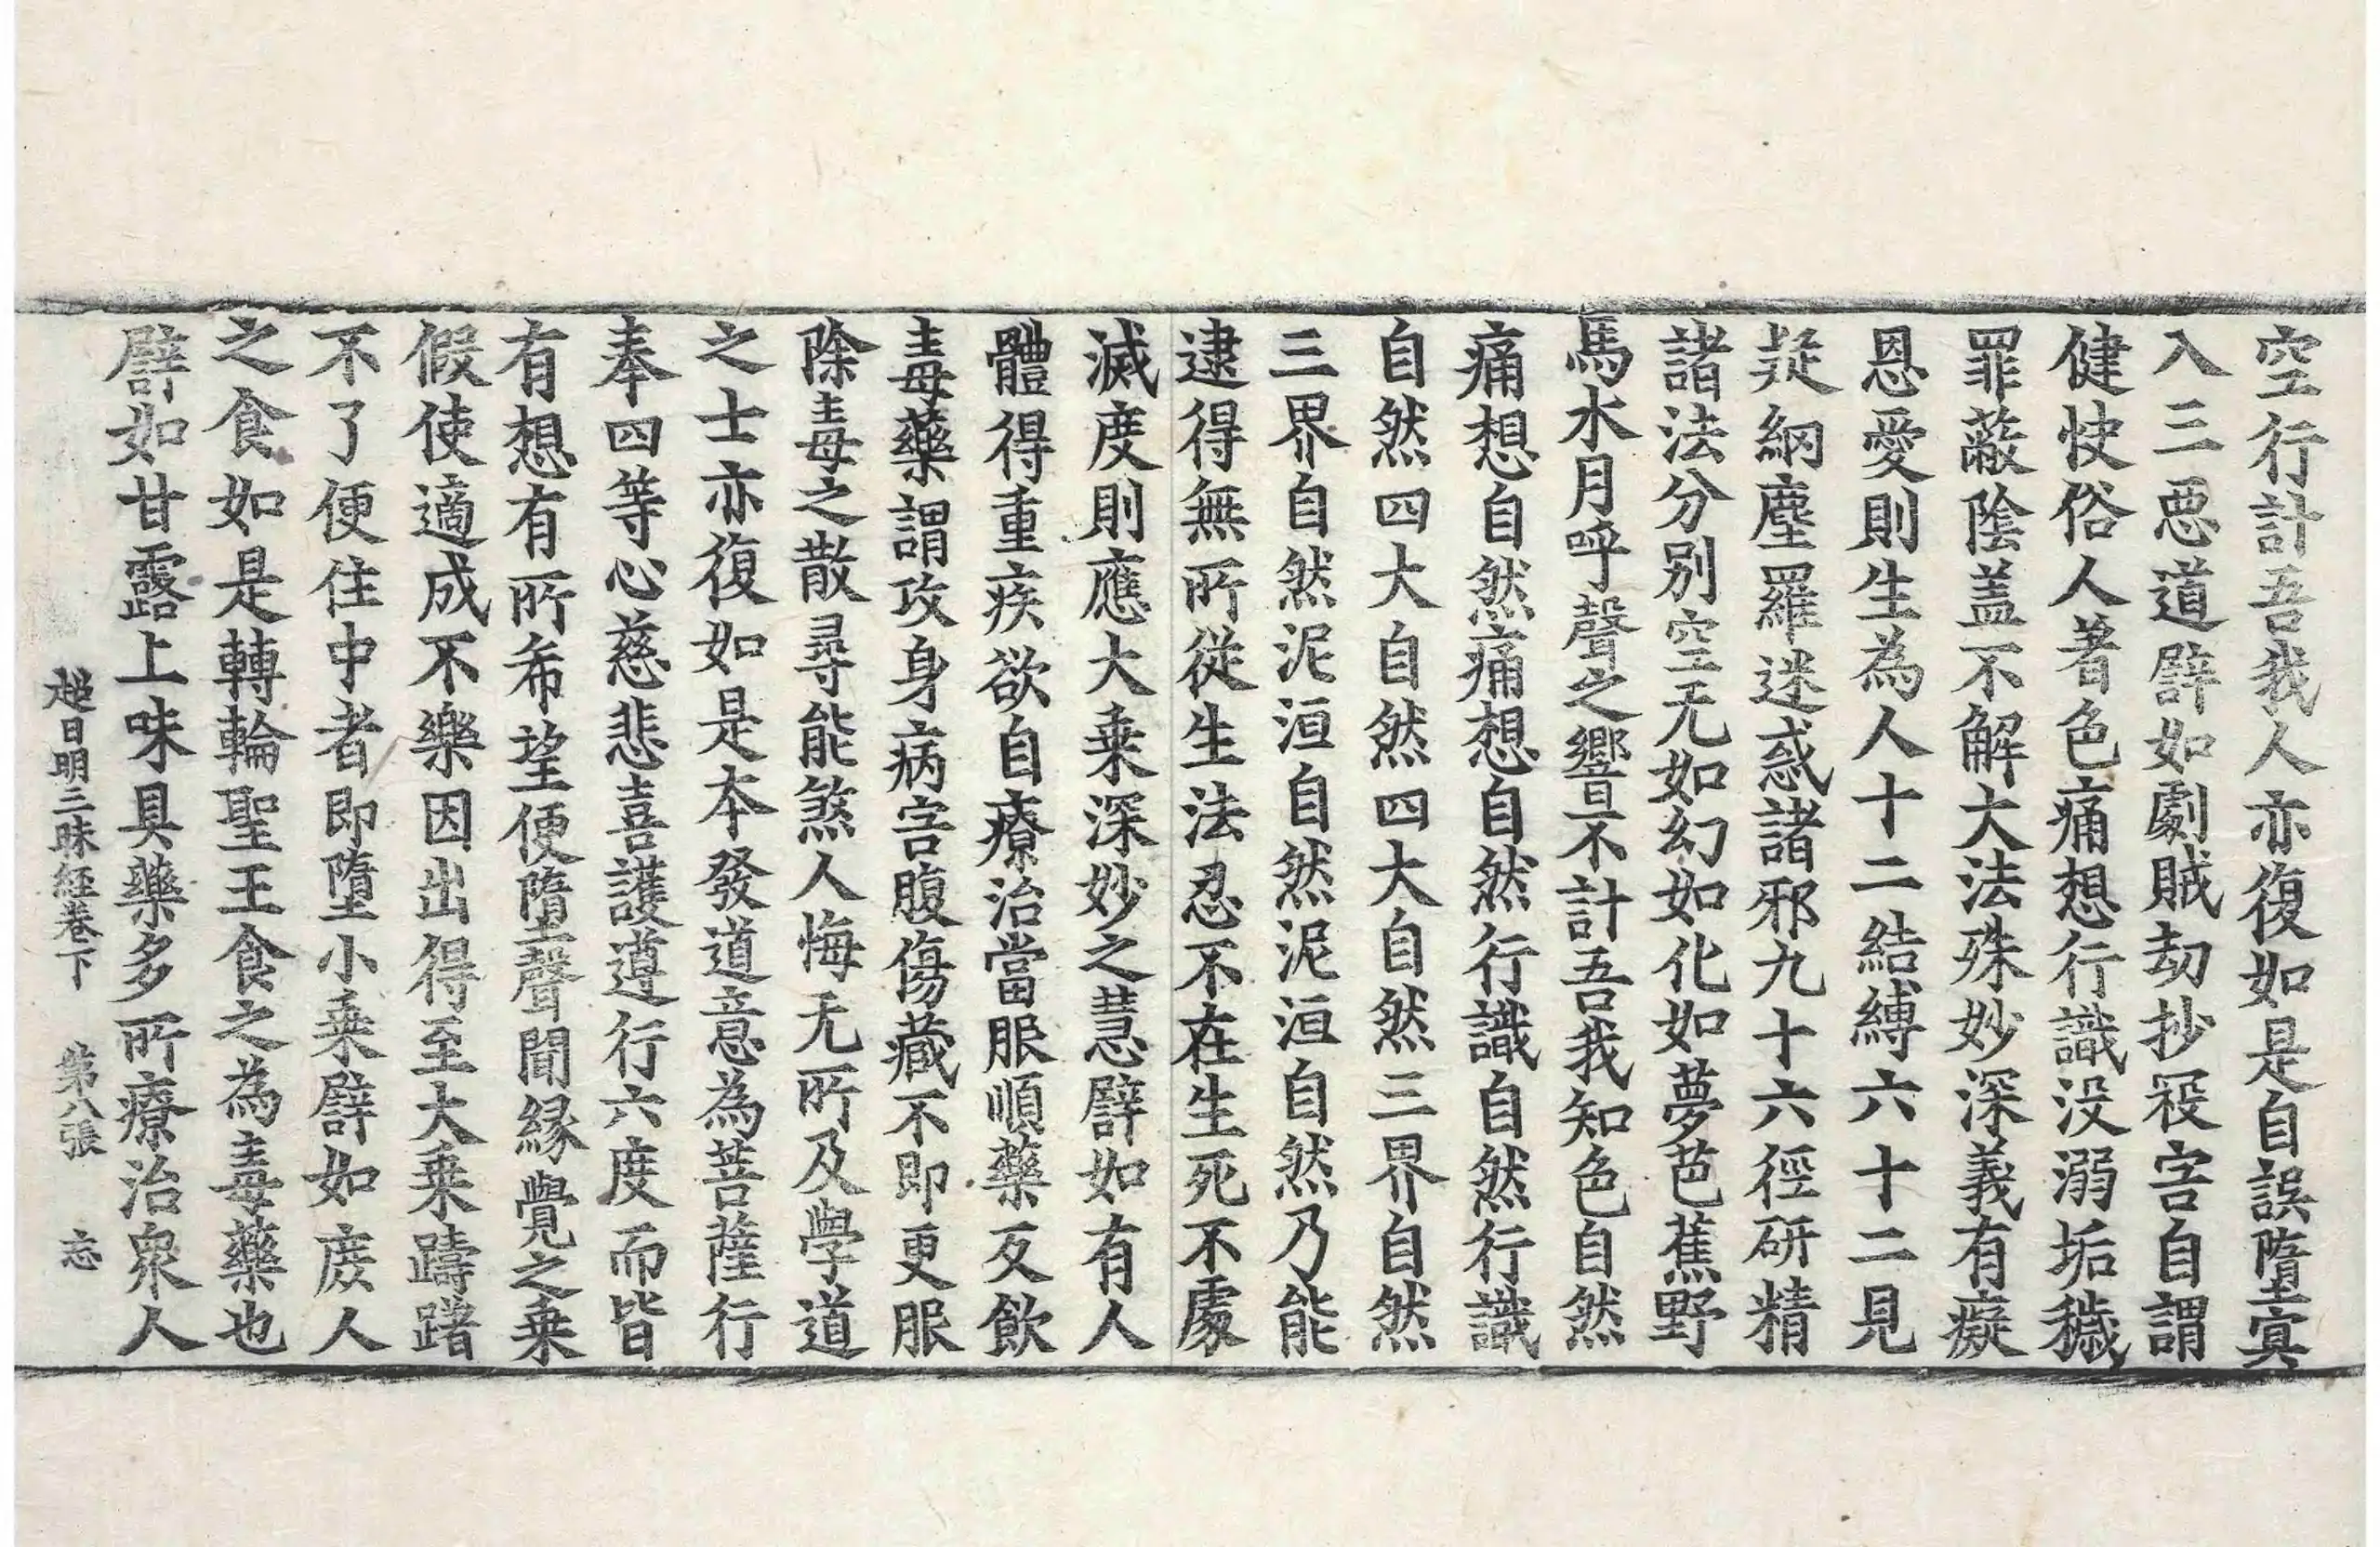 空行計吾我人亦復如是自誤墮寘
入三惡道譬如劇賊劫抄役害自謂
健快俗人著色痛想行識没溺垢穢
罪蔽陰盖不解大法殊妙深義有癡
恩愛則生為人十二結縛六十二見
疑網塵羅迷惑諸邪九十六徑研精
諸法分别空无如幻如化如夢芭蕉野
馬水月呼聲之響不計吾我知色自然
痛想自然痛想自然行識自然行識
自然四大自然四大自然三界自然
三界自然泥洹自然泥洹自然乃能
逮得無所從生法忍不在生死不處
滅度則應大乗深妙之慧譬如有人
體得重疾欲自療治當服順藥反飲
毒藥謂攻身病害腹傷藏不即更服
除毒之散尋能煞人悔无所及學道
之士亦復如是本發道意為菩薩行
奉四等心慈悲喜護遵行六度而皆
有想有所希望便墮聲聞緣覺之乗
假使適成不樂因出得至大乗躊躇
不了便住中者即墮小乗譬如庻人
之食如是轉輪聖王食之為毒藥也
譬如甘露上味具藥多所療治衆人
超日明三昧經卷下 第八張 忘